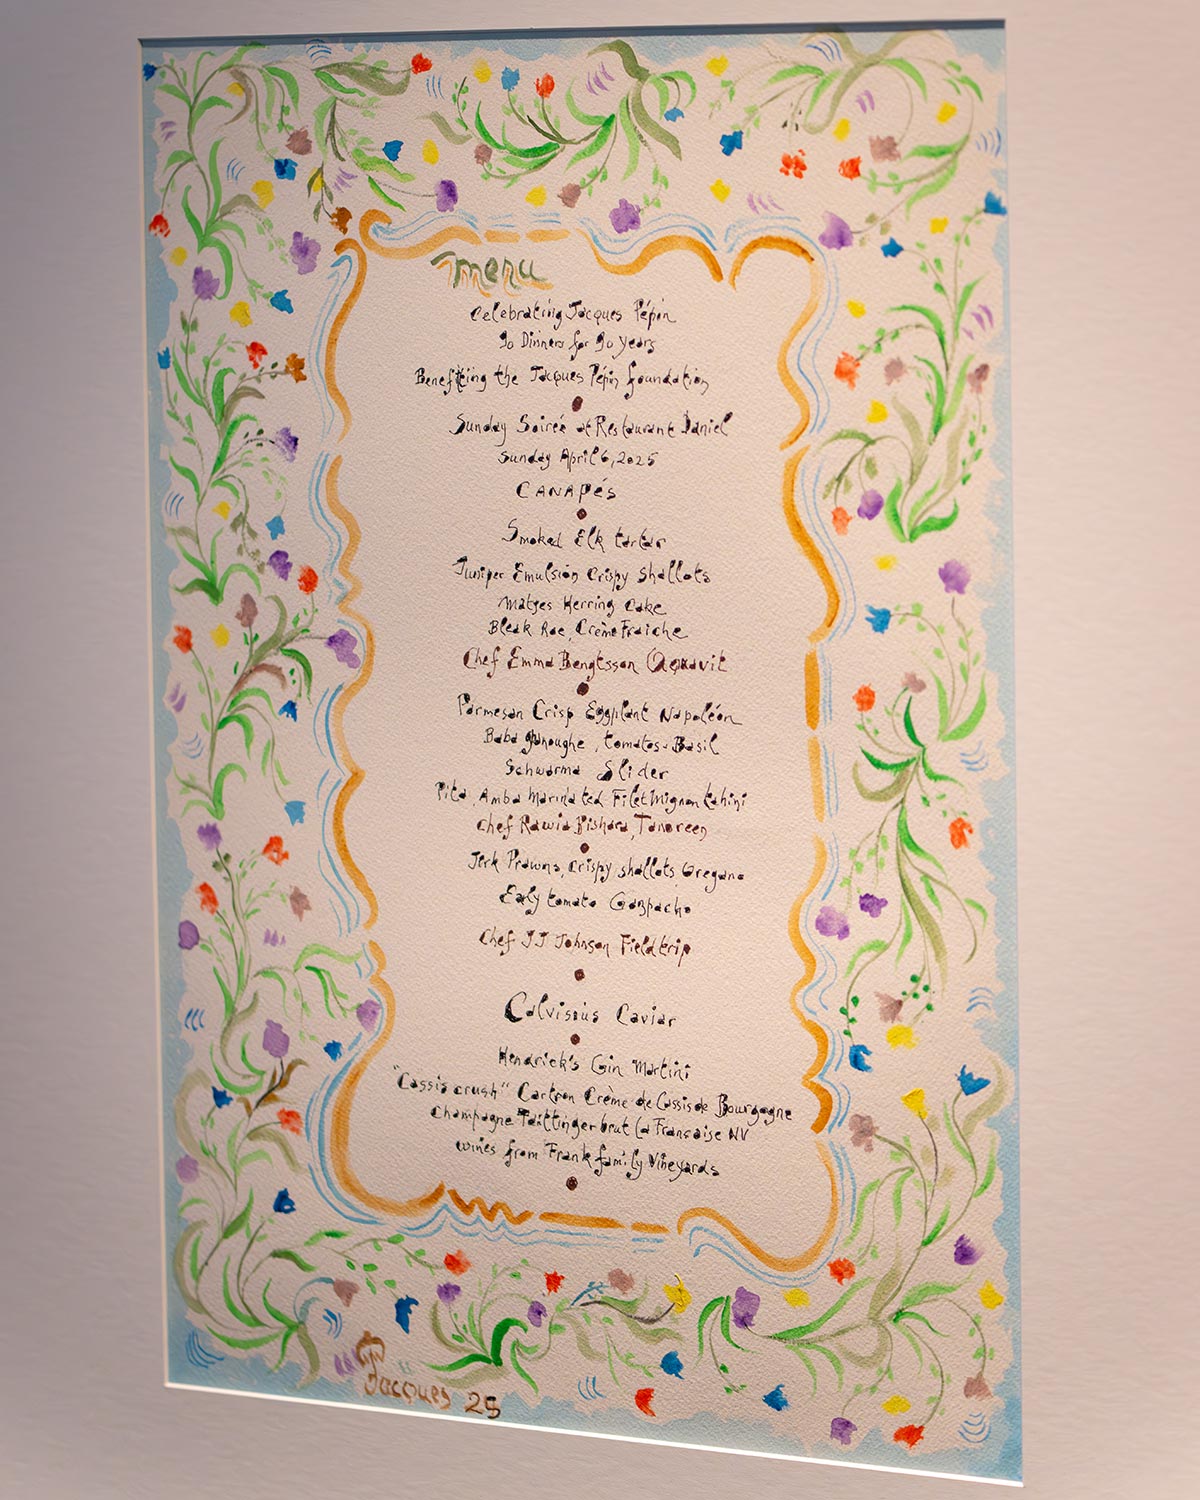 menu
Celebrating Jacques Pépin
90 Dinners for 90 years
Benefiting the Jacques Pépin foundation
Sunday Soirée at Restaurant Daniel
Sunday April 6, 2025
CANAPÉS
Smoked Elk tartar
Juniper Emulsion Crispy Shallots
Matjes Herring Cake
Bleak Roe, Crème Fraiche
Chef Emma Bengtsson Aquavit
Parmesan Crisp Eggplant Napoléon
Baba ganoughe, tomatos-Basil
Schwarma Slider
Pita, Amba Marinated Filet Mignon tahini
Chef Rawia Bishara, Tanoreen
Jerk Prawns, crispy shallots Oregano
Early tomato Gazpacho
Chef JJ Johnson Fieldtrip
Calvisius Caviar
Hendrick's Gin Martini
"Cassis crush" Cartron Crème de Cassis de Bourgogne
Champagne Taittinger brut La Francaise NV
wines from Frank family Vineyards
Jacques 25